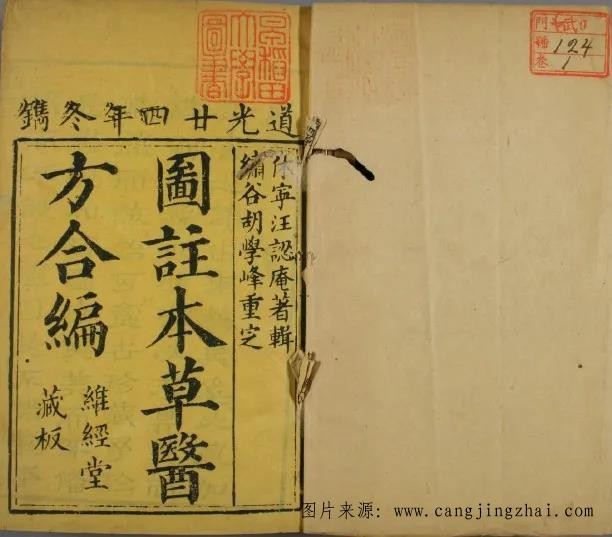 道光廿四年冬鐫
休寧汪認庵著輯
繡谷胡學峰重定
圖註本草醫
方合編
維經堂
藏板
早稻田
大學
圖書
門
號 124
卷 1
图片来源：www.cangjingzhai.com